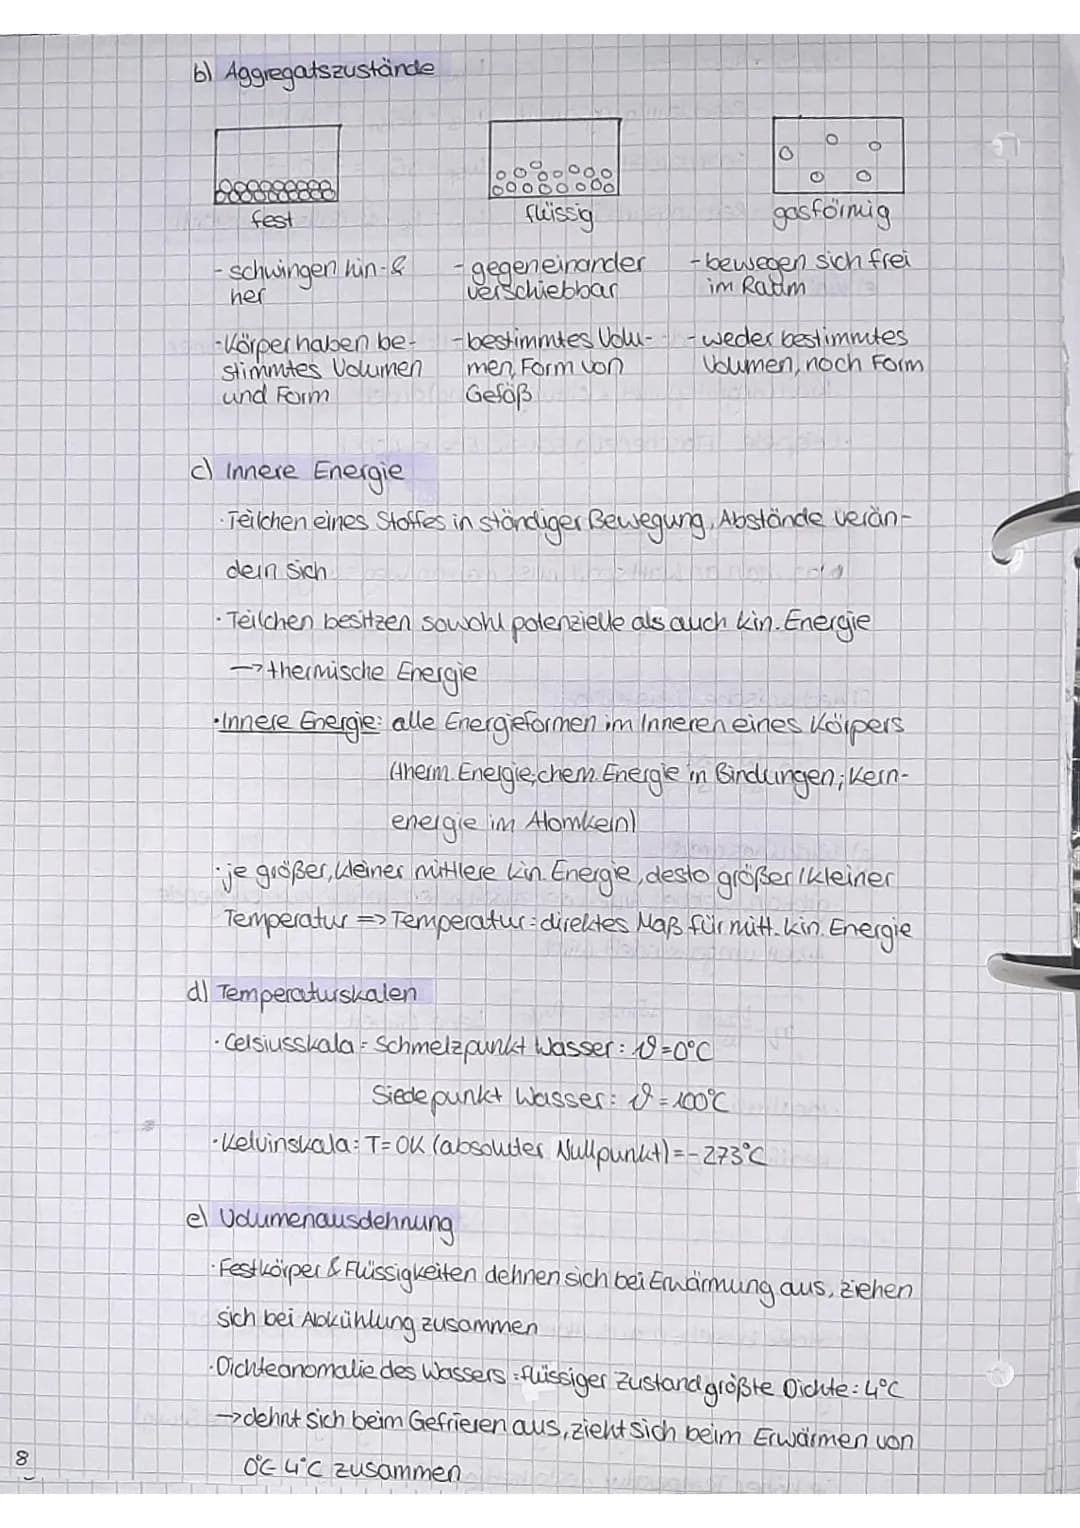 b) Aggregatszustände
fest
flüssig
gasförmig
- schwingen hin- &
her
- gegeneinander
verschiebbar
- bewegen sich frei
im Raum
- Körper haben be-
stimmtes Volumen
und Form
- bestimmtes Volu-
men, Form von
Gefäß
- weder bestimmtes
Volumen, noch Form
c) Innere Energie
· Teilchen eines Stoffes in ständiger Bewegung, Abstände verän-
dern sich
· Teilchen besitzen sowohl potenzielle als auch kin. Energie
→ thermische Energie
· Innere Energie: alle Energieformen im Inneren eines Körpers
(therm. Energie, chem. Energie in Bindungen; Kern-
energie im Atomkern)
· je größer, kleiner mittlere kin. Energie, desto größer / kleiner
Temperatur => Temperatur: direktes Maß für mitt. kin. Energie
d) Temperaturskalen
· Celsiusskala: Schmelzpunkt Wasser: ϑ = 0°C
Siedepunkt Wasser: ϑ = 100°C
· Kelvinskala: T = 0K (absoluter Nullpunkt) = -273°C
e) Volumenausdehnung
· Festkörper & Flüssigkeiten dehnen sich bei Erwärmung aus, ziehen
sich bei Abkühlung zusammen
· Dichteanomalie des Wassers: flüssiger Zustand größte Dichte: 4°C
→ dehnt sich beim Gefrieren aus, zieht sich beim Erwärmen von
0°C-4°C zusammen
8